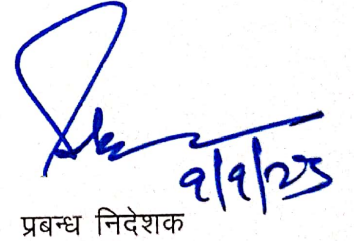 9/9/25
प्रबन्ध निदेशक